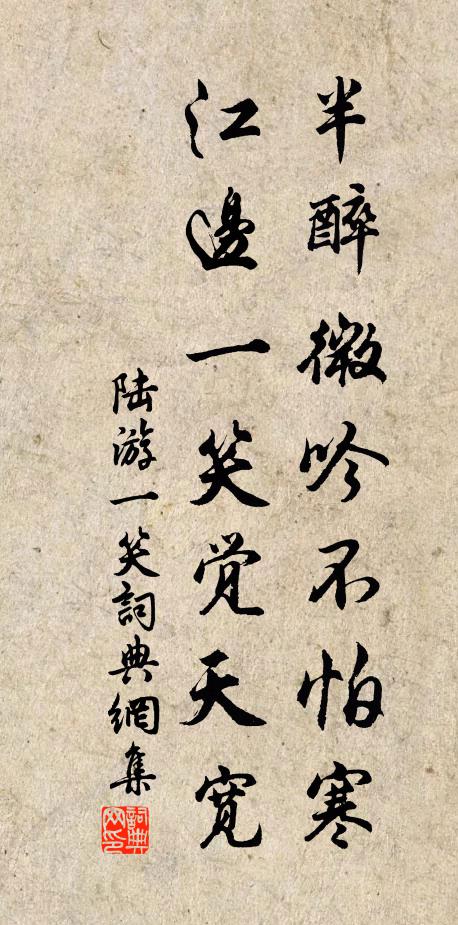 半醉微吟不怕寒
江邊一笑觉天寬
陆游一笑詞典網集
詞典网印